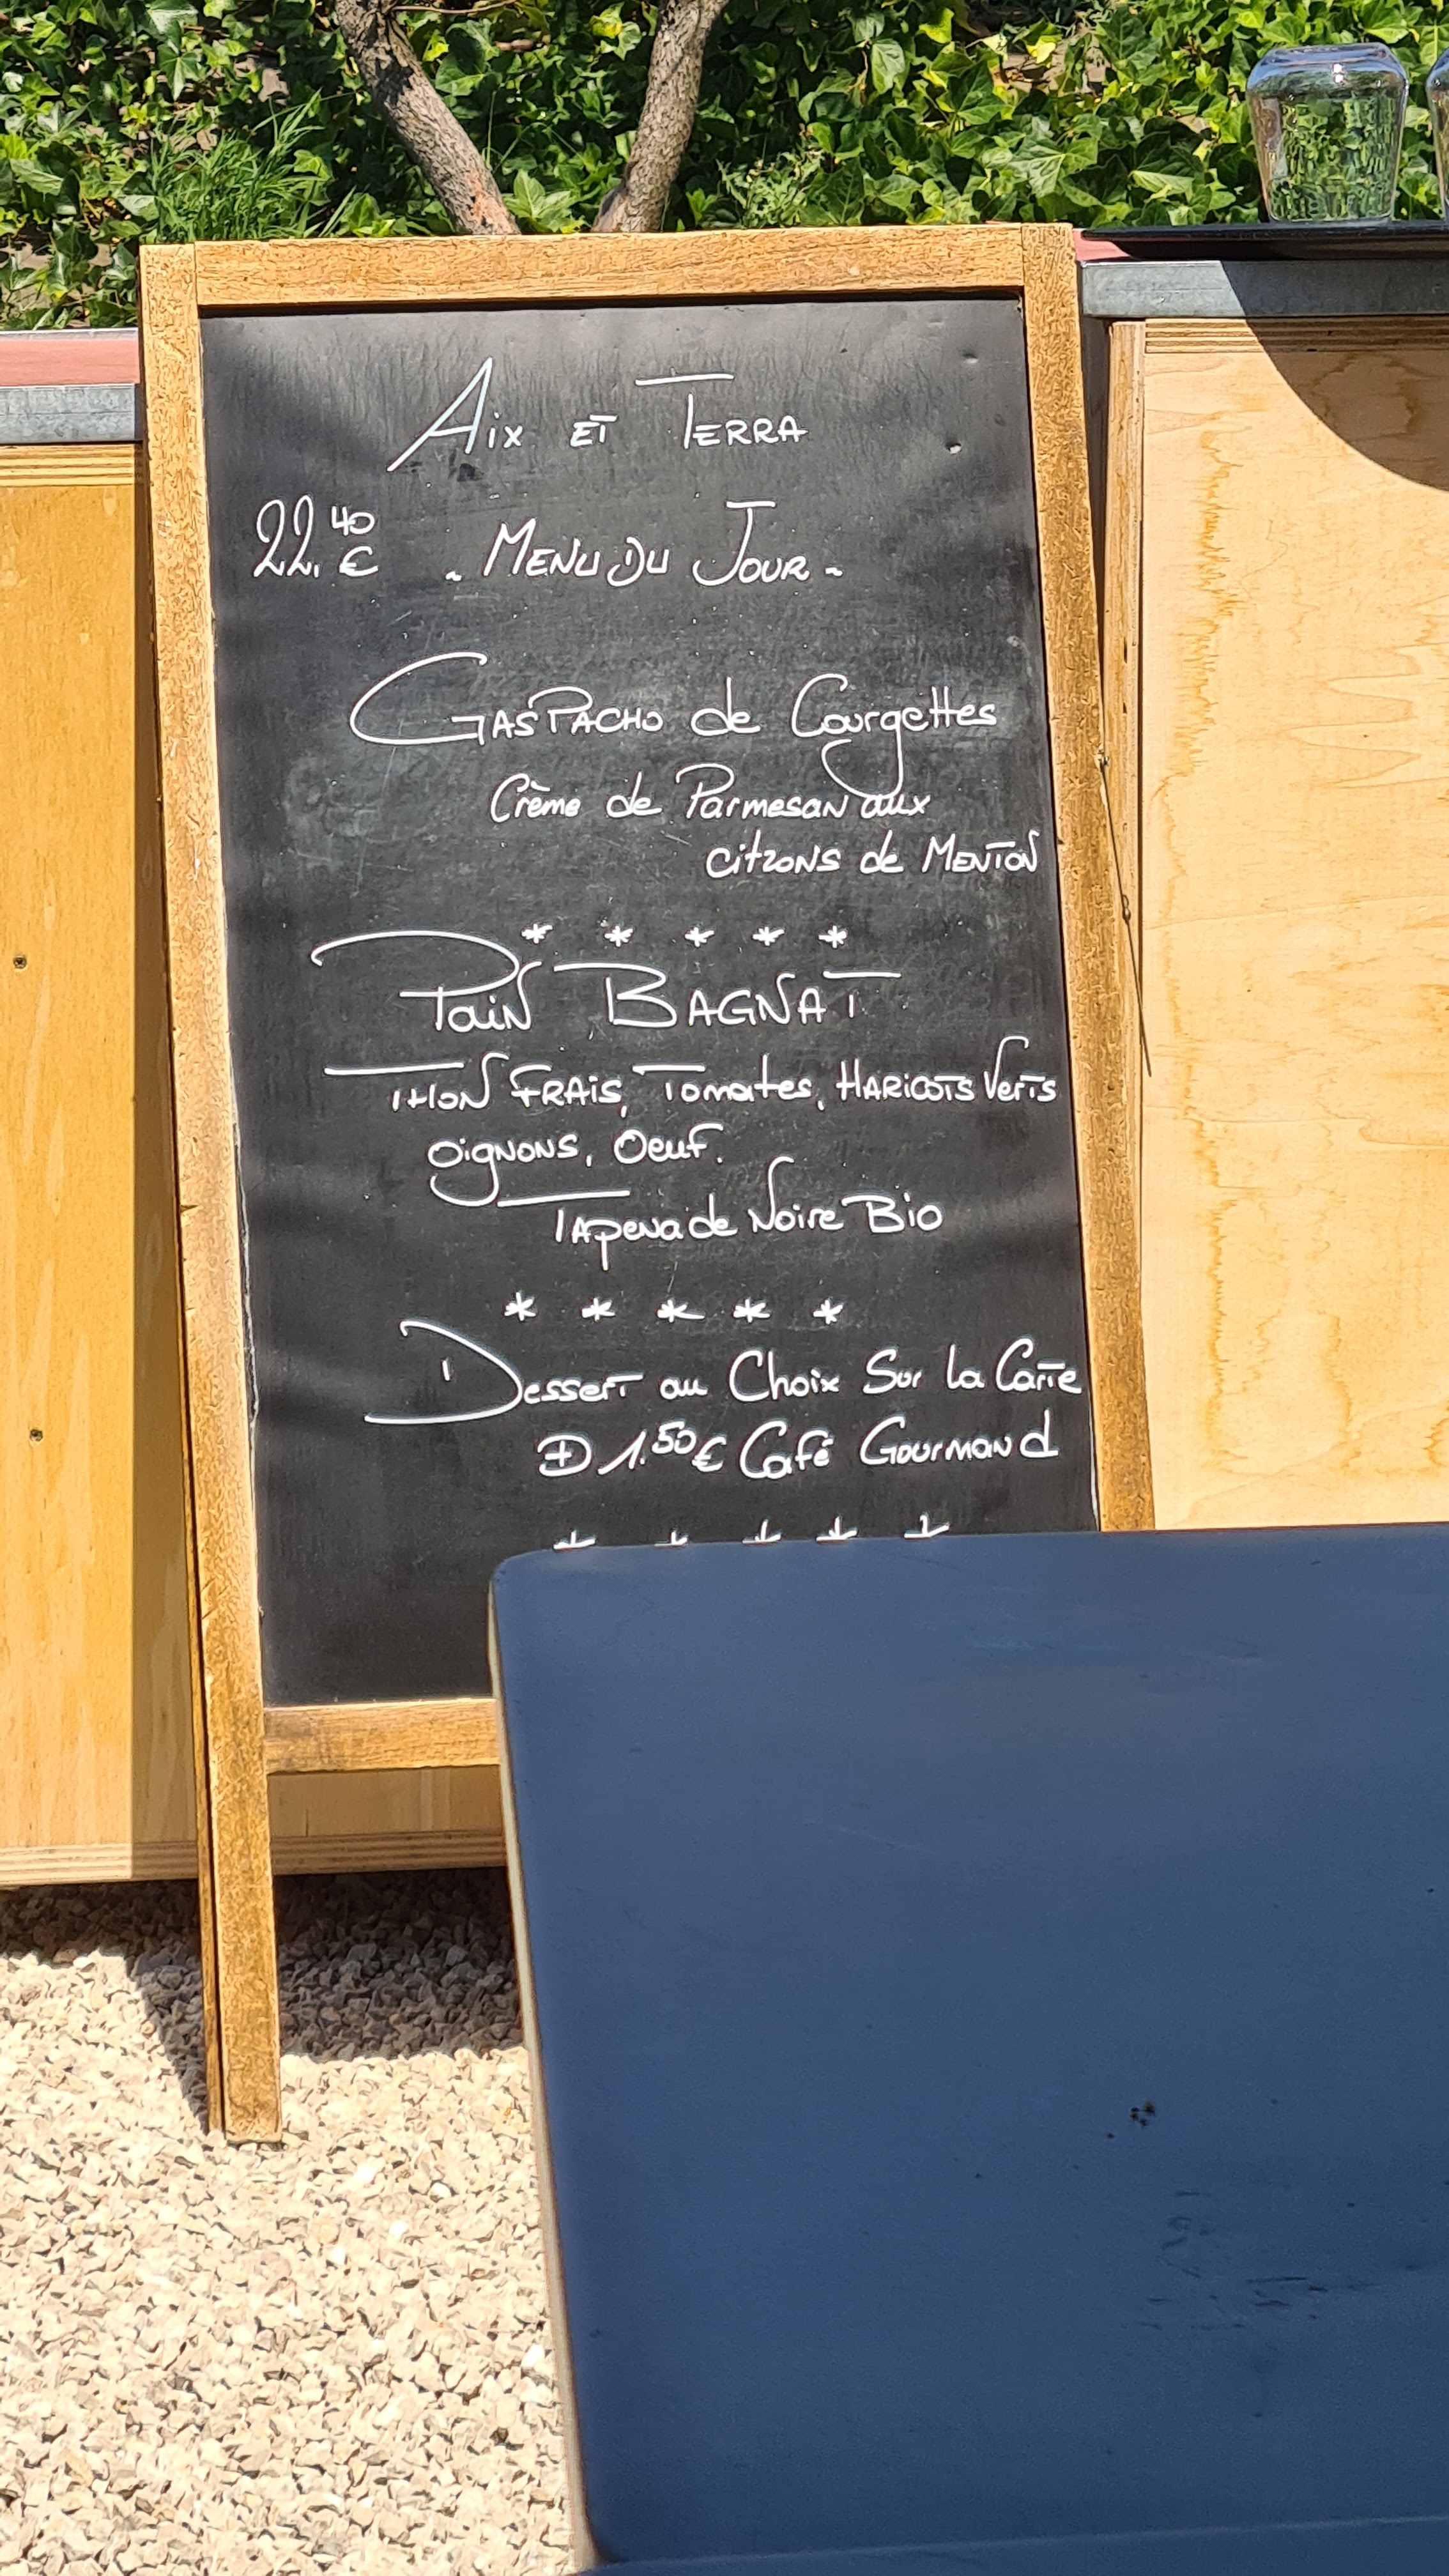 Aix et Terra
22.40 € - Menu du Jour -
Gaspacho de Courgettes
Crème de Parmesan aux
citrons de Menton
* * * * *
Pain Bagnat
Thon Frais, Tomates, Haricots Verts
Oignons, Oeuf.
Tapenade Noire Bio
* * * * *
Dessert au Choix Sur La Carte
1.50€ Café Gourmand
* * * * *